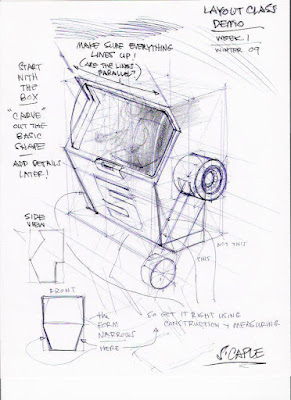 LAYOUT CLASS
DEMO
WEEK 1
WINTER 09
MAKE SURE EVERYTHING
LINES UP!
(ARE THE LINES
PARALLEL?)
START
WITH
THE
BOX
"CARVE"
OUT THE
BASIC
SHAPE
ADD DETAILS
LATER!
SIDE
VIEW
NOT THIS
THIS
FRONT
the
FORM
NARROWS
HERE
SO GET IT RIGHT USING
CONSTRUCTION & MEASURING
S. CAPLE